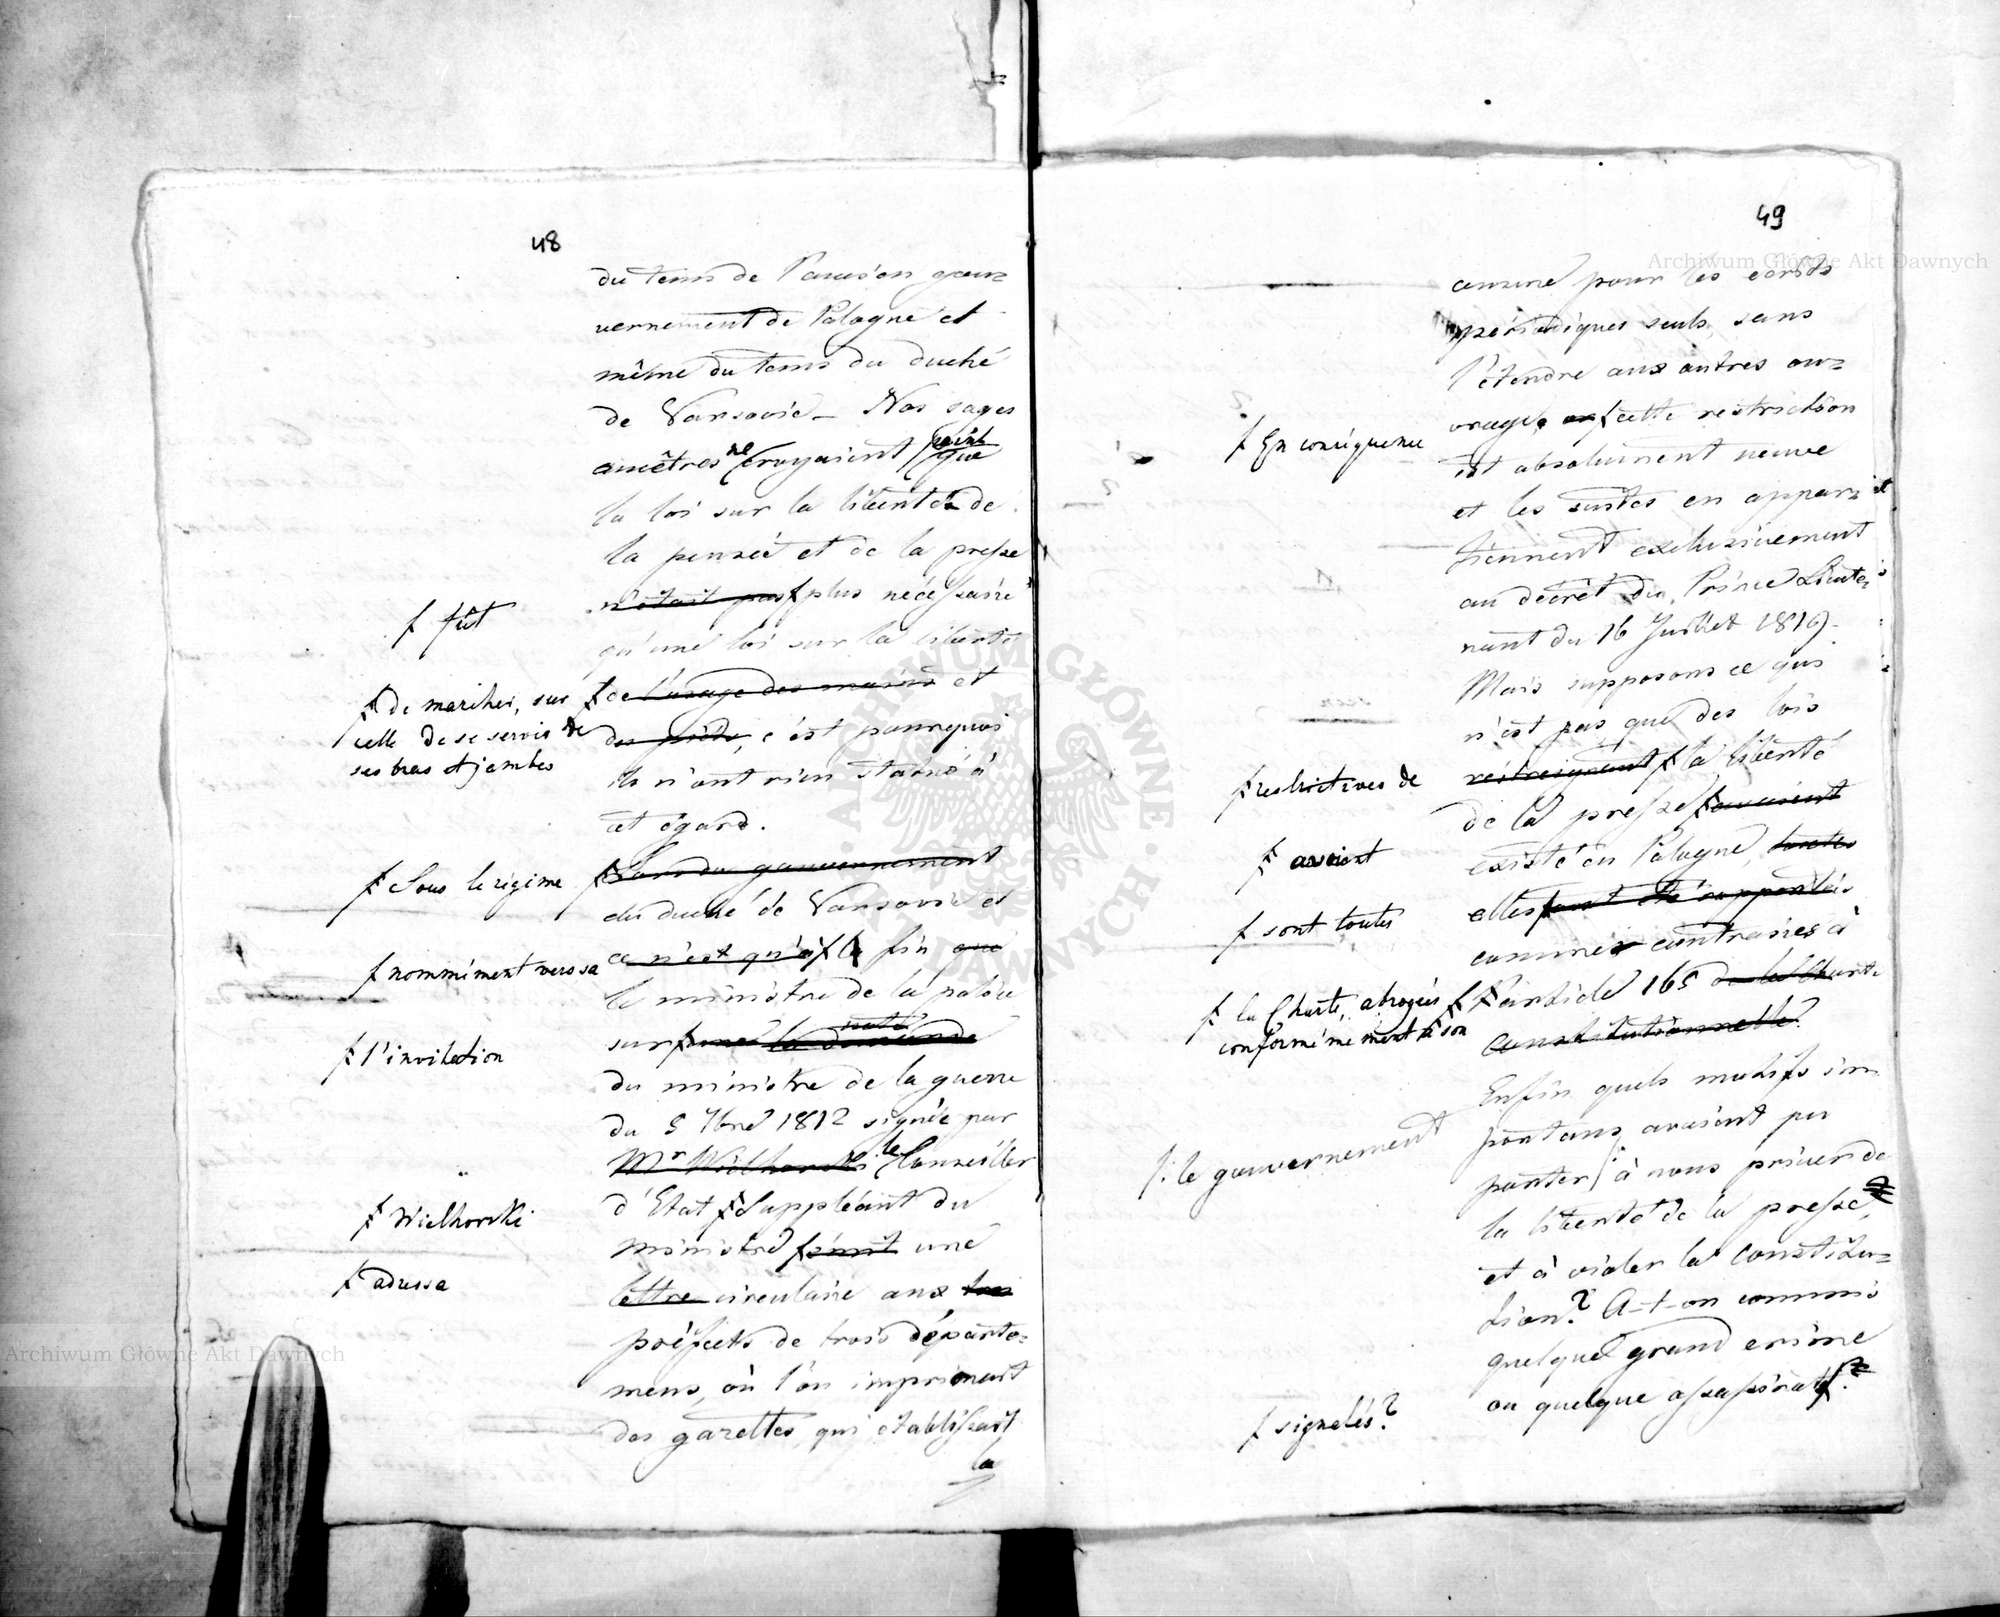 48
du tems de l'ancien gou=
vernement de Pologne et
même du tems du duché
de Varsovie – Nos sages
ancêtres ne croyaient point que
la loi sur la liberté de
la pensée et de la presse
n'était pas ƒ plus nécessaire
ƒ fût
qu'une loi sur la liberté
ƒ de l'usage des mains et
ƒ de marcher, sur
celle de se servir de
ses bras et jambes
des pieds, c'est pourquoi
ils n'ont rien statué à
cet égard.
ƒ Lors du gouvernement
ƒ Sous le régime
du duché de Varsovie et
ce n'est qu'à ƒ la fin que
ƒ nommément vers sa
le ministre de la police
sur ƒ une note la demande
ƒ l'invitation
du ministre de la guerre
du 5 7bre 1812 signée par
Mr Wielhorski le Conseiller
d'Etat ƒ Suppléant du
ƒ Wielhorski
ministre ƒ émit une
ƒ adressa
lettre circulaire aux trois
préfects de trois départe=
mens, où l'on imprimait
des gazettes, qui établissait
la
49
Archiwum Główne Akt Dawnych
censure pour les écrits
périodiques seuls, sans
l'étendre aux autres ou=
vrages ƒ cette restriction
ƒ En conséquence
est absolument neuve
et les suites en appar=
tiennent exclusivement
au décret du Prince Lieute=
nant du 16 Juillet 1819.
Mais supposons ce qui
n'est pas que des lois
restreignant ƒ la liberté
ƒ restrictives de
de la presse ƒ avaient
ƒ avaient
existé en Pologne, toutes
elles ƒ sont été supprimées
ƒ sont toutes
comme contraires à
ƒ l'article 165 de la Charte
ƒ la Charte, abrogées
conformément à son
constitutionnelle.
Enfin quels motifs im=
portans avaient pu
porter ƒ à nous priver de
ƒ: le gouvernement
la liberté de la presse,
et à violer la constitu=
tion? A-t-on commis
quelque grand crime
ou quelque assassinat ƒ?
ƒ signalés?
Archiwum Główne Akt Dawnych
ARCHIWUM GŁÓWNE AKT DAWNYCH